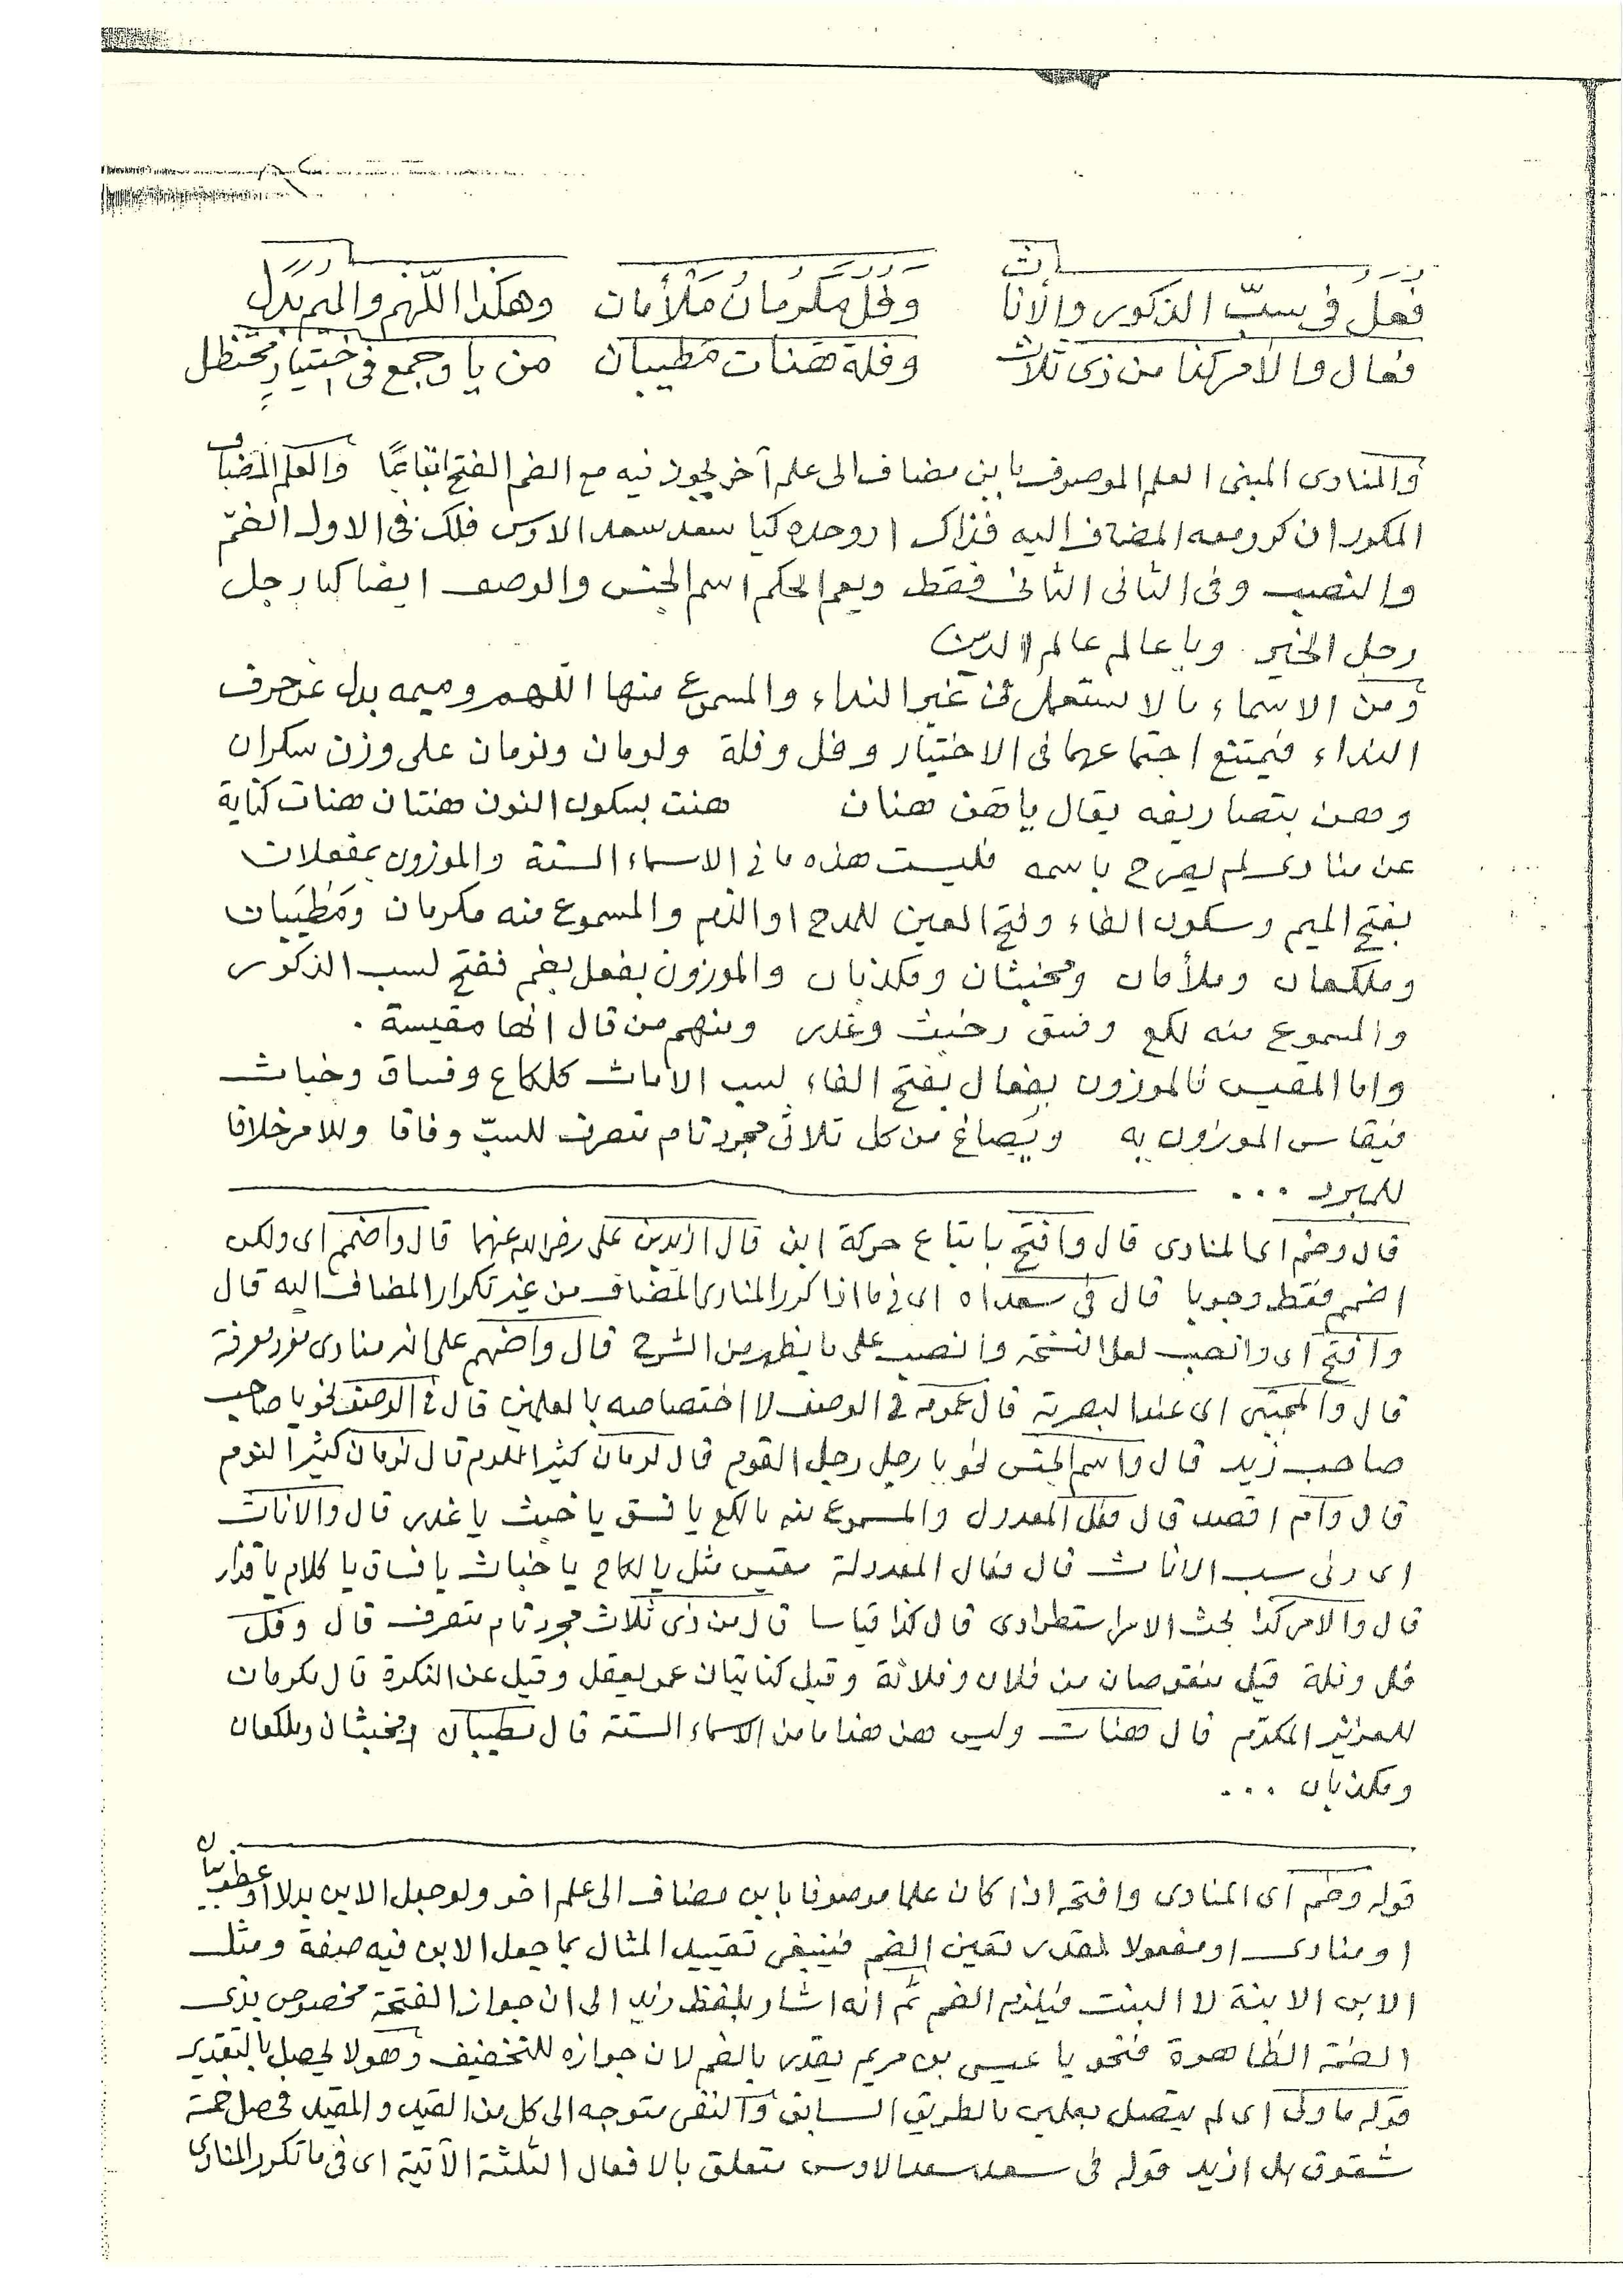 فعل فى سبّ الذكور والأناث وفل مكرمان ملأمان وهكذا اللّهم والميم بدل
فعال والأمر كذا من ذى ثلاث وفلة هنات مطيبان من يا وجمع فى اختيار محتظل
والمنادى المبنى العلم الموصوف بابن مضاف الى علم آخر يجوز فيه مع الضم الفتح اتباعًا والعلم المضاف
المكور ان كرر معه المضاف اليه فذاك او وحده كيا سعد سعد الاوس فلك فى الاول الضمّ
والنصب وفى الثانى الثانى فقط ويعم الحكم اسم الجنس والوصف ايضا كيا رجل
رجل الخير ويا عالم عالم الدين
ومن الاسماء ما لا يستعمل فى غير النداء والمسموع منها اللهم وميمه بدل عن حرف
النداء فيمتنع اجتماعهما فى الاختيار وفل وفلة ولومان ونومان على وزن سكران
وهن بتصاريفه يقال يا هن هنان هنت بسكون النون هنتان هنات كناية
عن منادى لم يصرح باسمه فليست هذه ما فى الاسماء الستة والموزون بمفعلان
بفتح الميم وسكون الفاء وفتح العين للمدح او الذم والمسموع منه مكرمان ومَطْيَبان
وملكعان وملأمان ومخبثان ومكذبان والموزون بفعل بضم ففتح لسب الذكور
والمسموع منه لكع وفسق وخبث وغدر ومنهم من قال انها مقيسة .
واما المقيس فالموزون بفعال بفتح الفاء لسب الأناث كلكاع وفساق وخباث
فيقاس الموزون به ويُصاغ من كل ثلاثى مجرد تام متصرف للسبّ وفاقا وللامر خلافا
للمبرد ...
قال وضم اى المنادى قال وافتح باتباع حركة ابن قال ازيد بن على رضى الله عنهما قال واضمم اى ولكن
اضمم فقط وجوبا قال فى سعد اه اى فى ما اذا كرر المنادى المضاف من غير تكرار المضاف اليه قال
وافتح اى وانصب لعل النسخة وانصب على ما يظهر من الشرح قال واضمم على انه منادى مفرد معرفة
قال والمجتبى اى عند البصرية قال عمومه فى الوصف لا اختصاصه بالعلمين قال فى الوصف نحو يا صاحب
صاحب زيد قال واسم الجنس نحو يا رجل رجل القوم قال لومان كثير اللوم قال نومان كثير النوم
قال وأم اقصد قال فعل المعدول والمسموع منه يا لكع يا فسق يا خبث يا غدر قال والاناث
اى وفى سب الاناث قال فعال المعدولة مقيس مثل يا لكاع يا خباث يا فساق يا كلام يا قذار
قال والامر كذا بحث الامر استطرادى قال كذا قياسا قال من ذى ثلاث مجرد تام متصرف قال وفل
فل وفلة قيل منقوصان من فلان وفلانة وقيل كنايتان عمن يعقل وقيل عن النكرة قال مكرمان
للعزيز المكرّم قال هنات وليس هن هذا ما من الاسماء الستة قال مطيبان ومخبثان وملكعان
ومكذبان ...
قوله وضم اى المنادى وافتحه اذا كان علما موصوفا بابن مضاف الى علم اخر ولو جعل الابن بدلا او عطف بيان
او منادى او مفعولا لمقدر تعين الضم فينبغى تقييد المثال بما جعل الابن فيه صفة ومثل
الابن الابنة لا البنت فيلزم الضم ثم انه اشار بلفظ زيد الى ان جواز الفتحة مخصوص بذى
الضمة الظاهرة فنحو يا عيسى بن مريم يقدر بالضم لان جوازه للتخفيف وهو لا يحصل بالتقدير
قوله ما ولى اى لم يتصل بعلمين بالطريق السابق والنفى متوجه الى كل من القيد والمقيد فحصل خمسة
شقوق بل ازيد قوله فى سعد سعد الاوس متعلق بالافعال الثلثة الآتية اى فى ما تكرر المنادى